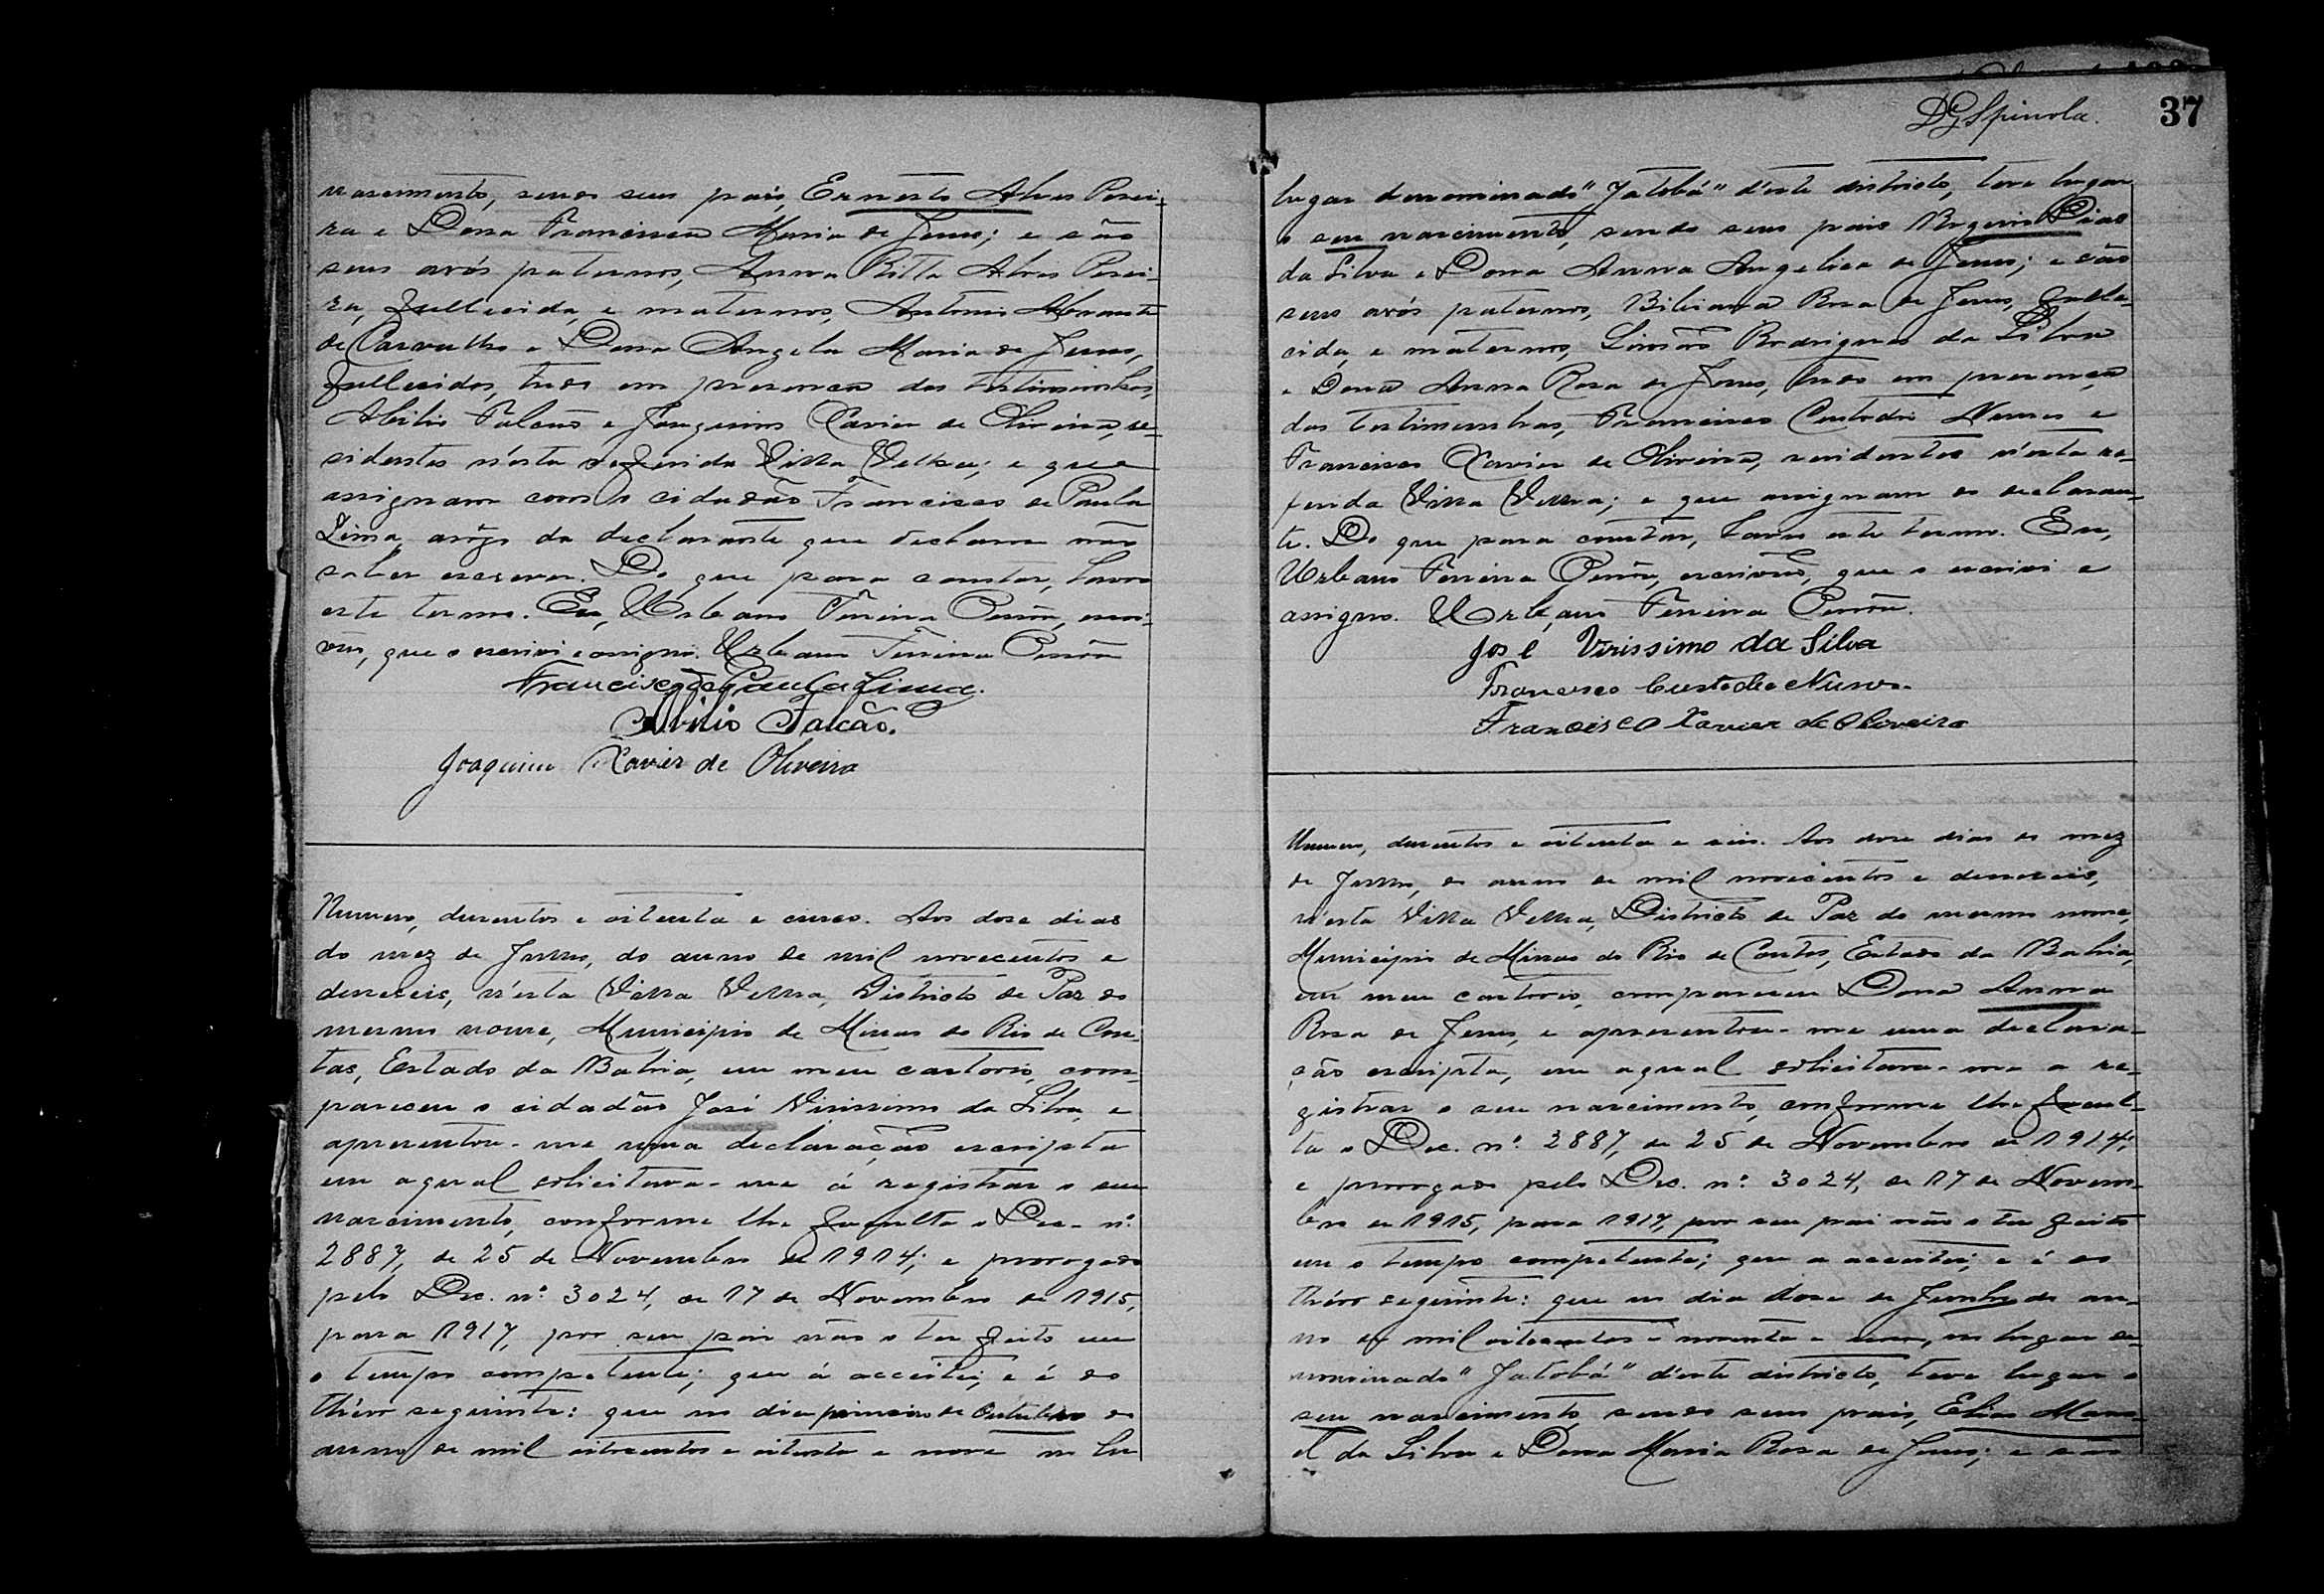 nascimento, sendo seus pais, Ernesto Alves Perei-
ra e Dona Francisca Maria de Jesus; e são
seus avós paternos, Anna Ritta Alves Perei-
ra, fallecida, e maternos, Antonio
de Carvalho e Dona Angela Maria de Jesus,
fallecidos, tudo em presença das testimunhas,
Abilio Falcão e Joaquim Xavier de Oliveira, re-
sidentes n'esta referida Villa Velha; e que
assignam com o cidadão Francisco de Paula
Lima, arôgo da declarante que declarou não
saber escrever. Do que para constar, lavro
este termo. Eu, Urbano Ferreira Perrôn, escri-
vão, que o escrivi e assigno. Urbano Ferreira Perrôn
Francisco de Paula Lima.
Abilio Falcão.
Joaquim Xavier de Oliveira
Numero, duzentos e oitenta e cinco. Aos doze dias
do mez de Julho, do anno de mil novecentos e
dezeseis, n'esta Villa Velha, Districto de Paz do
mesmo nome, Municipio de Minas do Rio de Con-
tas, Estado da Bahia, em meu cartorio, com-
pareceu o cidadão José Virissimo da Silva, e
apresentou-me uma declaração escripta
em a qual solicitava-me á registrar o seu
nascimento, conforme lhe faculta o Dec. nº
2887, de 25 de Novembro de 1914; e prorogado
pelo Dec. nº 3024, de 17 de Novembro de 1915,
para 1917, por seu pai não o ter feito em
o tempo competente; que á acceitei, e é do
théor seguinte: que no dia primeiro de Outubro do
anno de mil oitocentos e oitenta e nove no lu
D G Spinola.
37
lugar denominado "Jatobá" d'este districto, teve lugar
o seu nascimento, sendo seus pais Dias
da Silva e Dona Anna Angelica de Jesus; e são
seus avós paternos, Bibiana Rosa de Jesus, falle-
cida, e maternos, Simão Rodrigues da Silva
e Dona Anna Rosa de Jesus, tudo em presença
das testimunhas, Francisco Custodio Nunes e
Francisco Xavier de Oliveira, residentes n'esta re-
ferida Villa Velha; e que assignam do declaran-
te. Do que para constar, lavro este termo. Eu,
Urbano Ferreira Perrôn, escrivão, que o escrivi e
assigno. Urbano Ferreira Perrôn.
José Virissimo da Silva
Francisco Custodio Nunes.
Francisco Xavier de Oliveira
Numero, duzentos e oitenta e seis. Aos doze dias do mez
de Julho, do anno de mil novecentos e dezeseis,
n'esta Villa Velha, Districto de Paz do mesmo nome,
Municipio de Minas do Rio de Contas, Estado da Bahia,
em meu cartorio, compareceu Dona Anna
Rosa de Jesus, e apresentou-me uma declara-
ção escripta, em a qual solicitava-me a re-
gistrar o seu nascimento, conforme lhe facul-
ta o Dec. nº 2887, de 25 de Novembro de 1914;
e prorogado pelo Dec. nº 3024, de 17 de Novem-
bro de 1915, para 1917, por seu pai não o ter feito
em o tempo competente; que a acceitei, e é do
théor seguinte: que no dia doze de Junho do an-
no de mil oitocentos e noventa e um, no lugar de-
nominado "Jatobá" d'este districto, teve lugar o
seu nascimento, sendo seus pais, Elias Mano-
el da Silva e Dona Maria Rosa de Jesus; e são